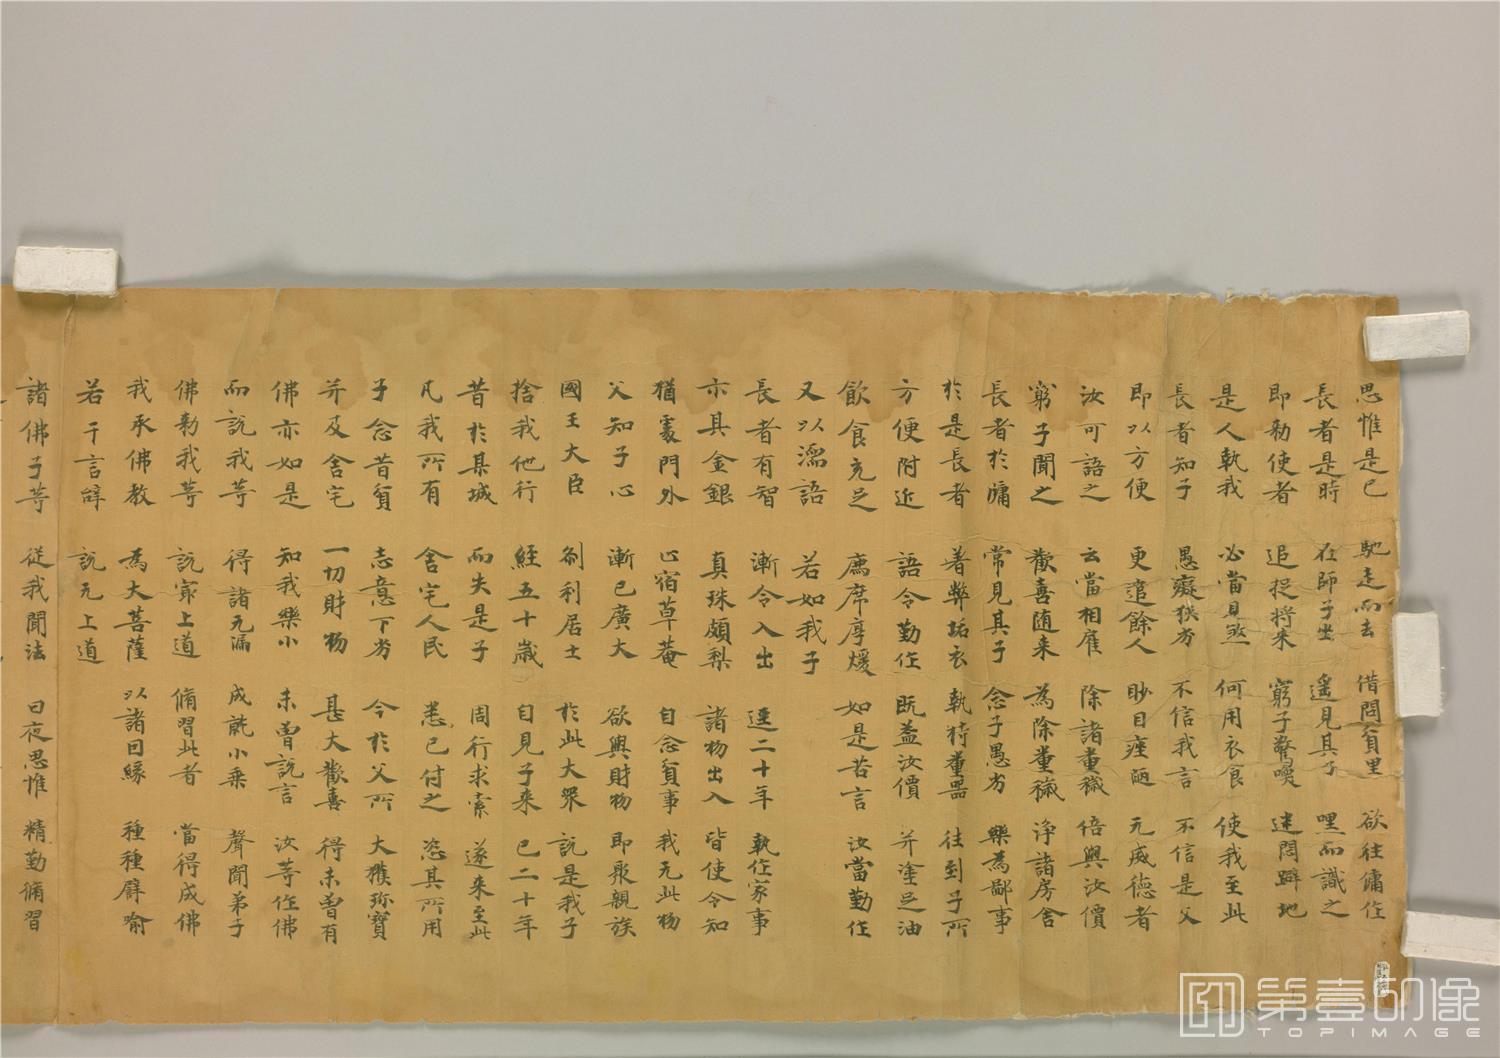 思惟是已 馳走而去 借問貧里 欲往傭作
長者是時 在師子坐 遥見其子 嘿而識之
即勑使者 追捉將來 窮子驚喚 迷悶躃地
是人執我 必當見煞 何用衣食 使我至此
長者知子 愚癡狹劣 不信我言 不信是父
即以方便 更遣餘人 眇目痤陋 无威德者
汝可語之 云當相雇 除諸糞穢 倍與汝價
窮子聞之 歡喜随来 為除糞穢 淨諸房舍
長者於牖 常見其子 念子愚劣 樂為鄙事
於是長者 著弊垢衣 執持糞器 往到子所
方便附近 語令勤作 既益汝價 并塗足油
飲食充足 薦席厚煖 如是苦言 汝當勤作
又以濡語 若如我子
長者有智 漸令入出 逕二十年 執作家事
亦具金銀 真珠頗梨 諸物出入 皆使令知
猶處門外 止宿草菴 自念貧事 我无此物
父知子心 漸已廣大 欲與財物 即聚親族
國王大臣 刹利居士 於此大眾 說是我子
捨我他行 經五十歲 自見子来 已二十年
昔於某城 而失是子 周行求索 遂来至此
凡我所有 舍宅人民 悉已付之 恣其所用
子念昔貧 志意下劣 今於父所 大獲珎寶
并及舍宅 一切財物 甚大歡喜 得未曽有
佛亦如是 知我樂小 未曽說言 汝等作佛
而說我等 得諸无漏 成就小乘 聲聞弟子
佛勑我等 說冣上道 脩習此者 當得成佛
我承佛教 為大菩薩 以諸因緣 種種譬喻
若干言辞 說无上道
諸佛子等 從我聞法 日夜思惟 精勤脩習
第壹印像
TOPIMAGE